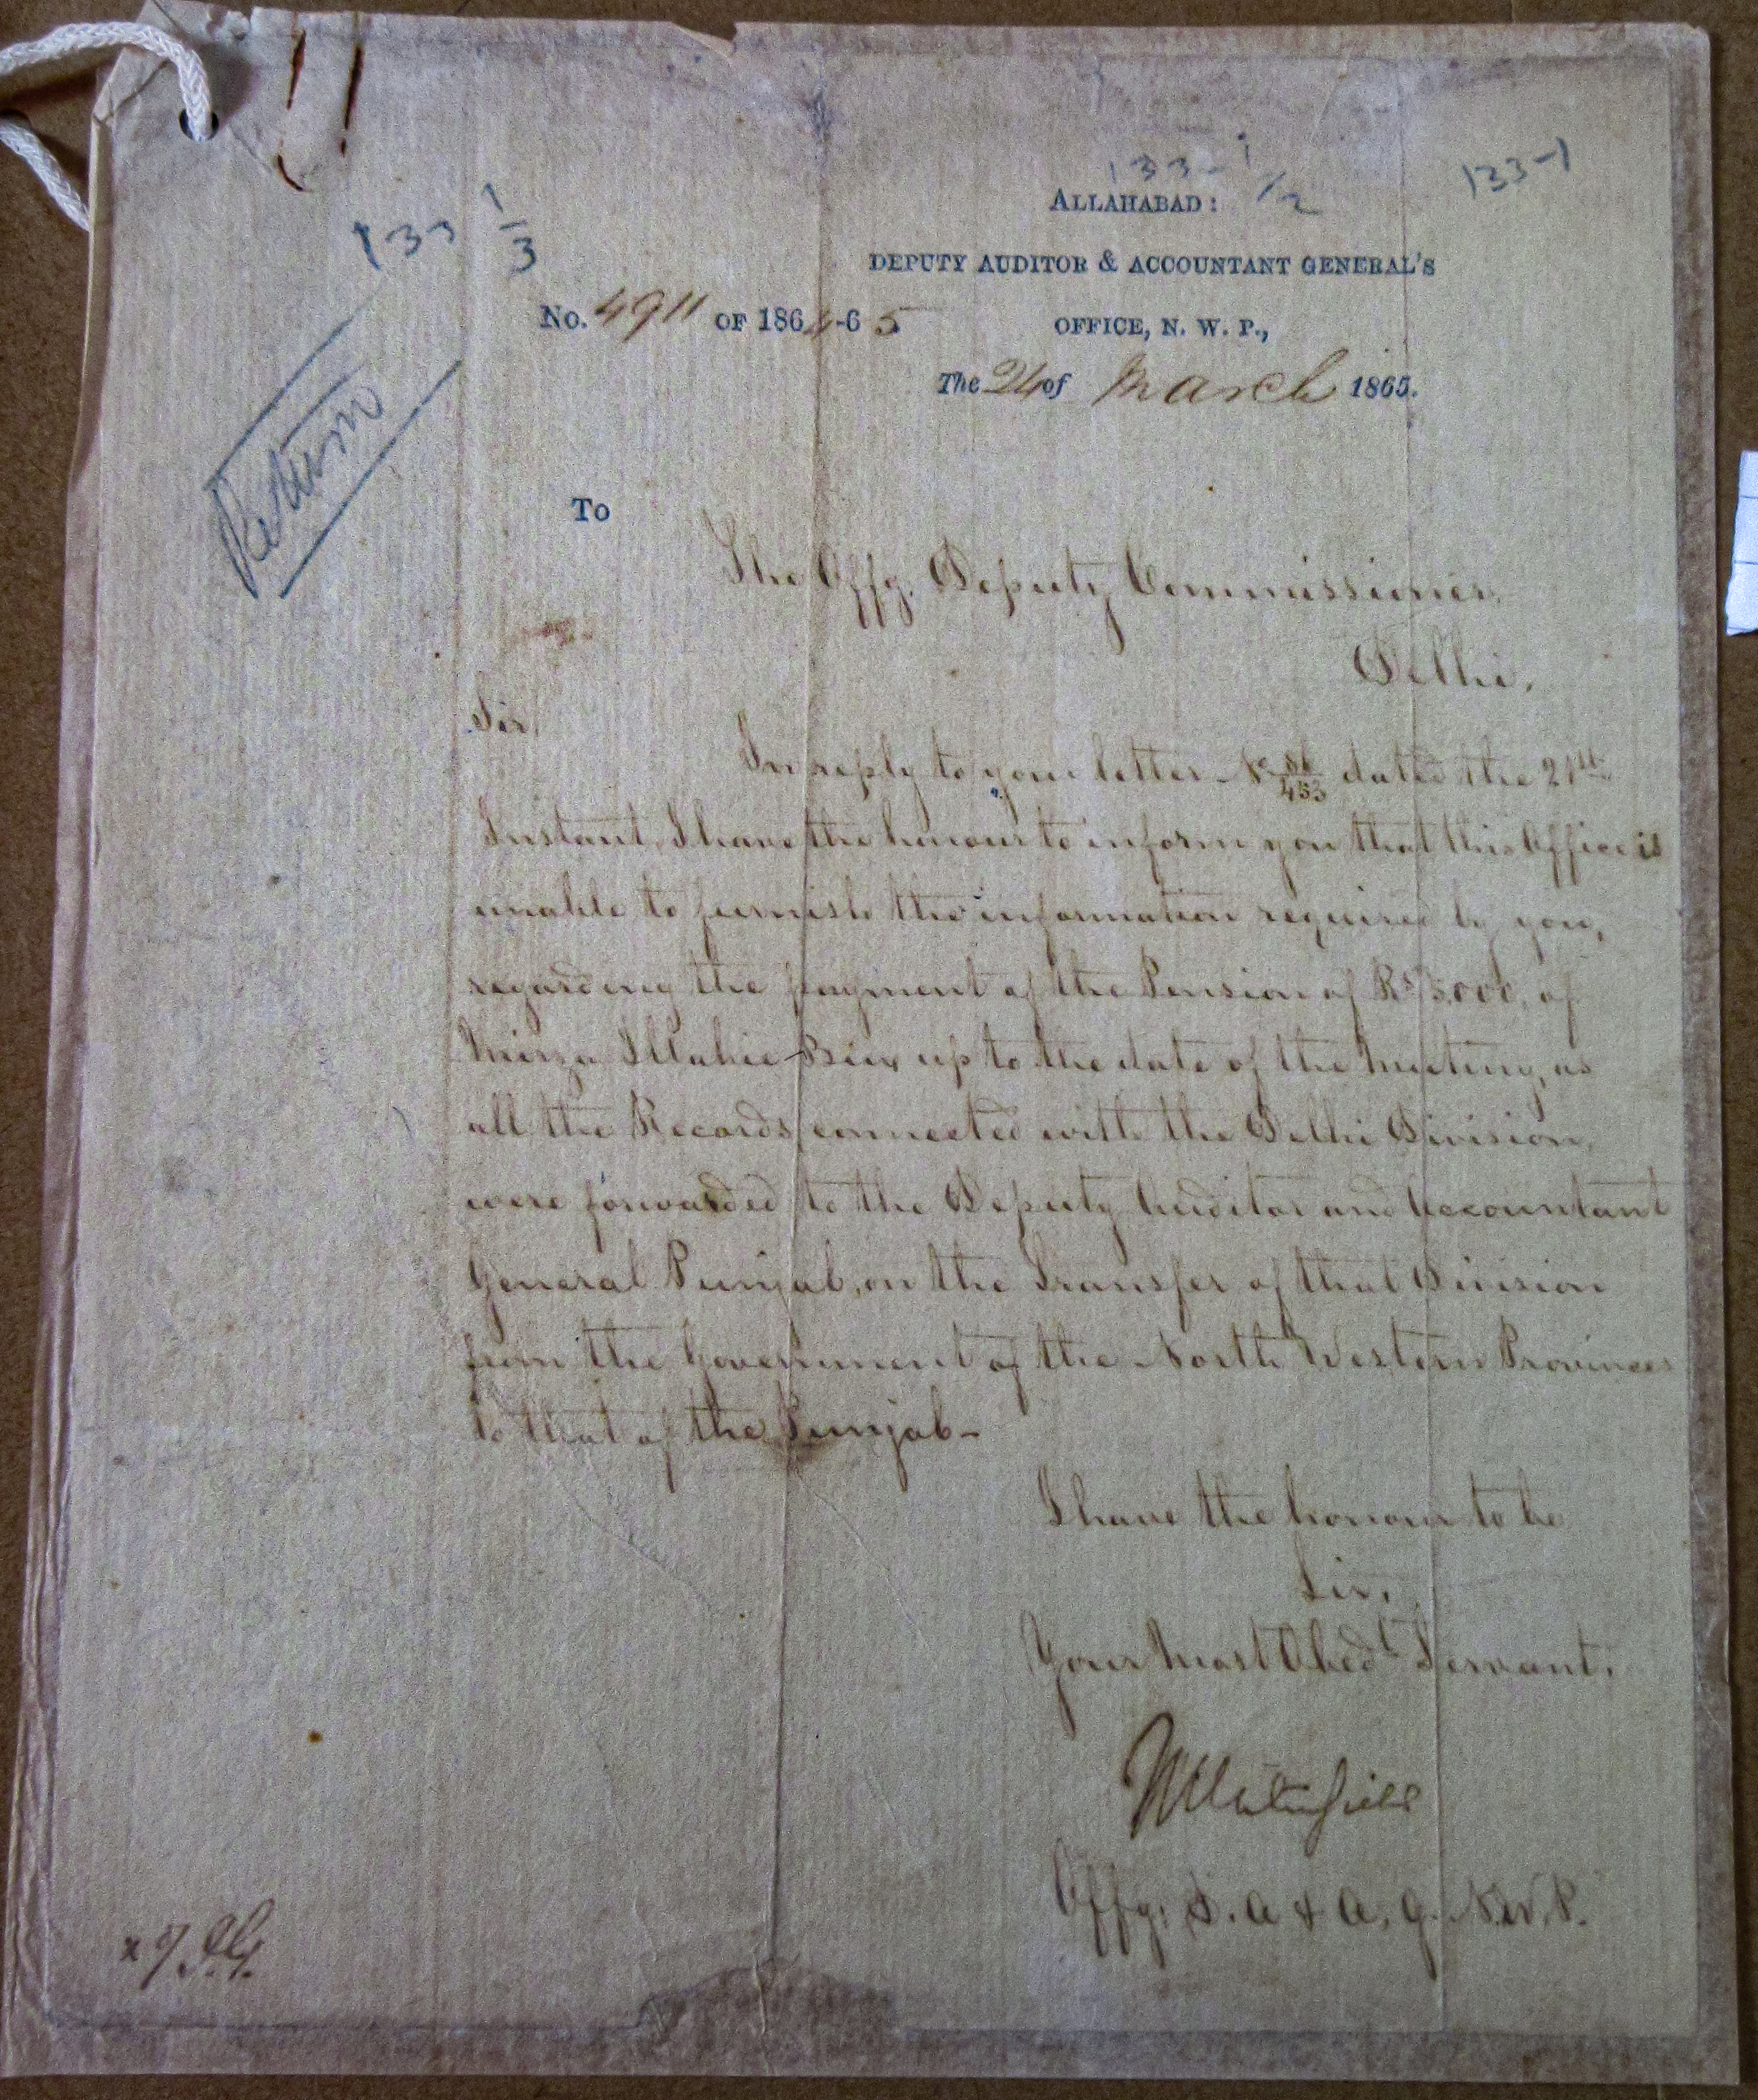 133-1
133-1/2
133 1/3
ALLAHABAD:
DEPUTY AUDITOR & ACCOUNTANT GENERAL'S
No. 4911 OF 1864-65
OFFICE, N. W. P.,
The 24 of March 1865.
Return
To
The Offg. Deputy Commissioner,
Delhi.
Sir,
In reply to your letter No dated the 21st
Instant, I have the honour to inform you that this Office is
unable to furnish the information required by you,
regarding the payment of the Pension of Rs 5000, of
Mirza Illahie Bux up to the date of the Mutiny, as
all the Records connected with the Delhi Division,
were forwarded to the Deputy Auditor and Accountant
General Punjab, on the Transfer of that Division
from the Government of the North Western Provinces
to that of the Punjab-
I have the honour to be
Sir,
Your Most Obedt Servant,
Offg. D. A & A. G. N.W.P.